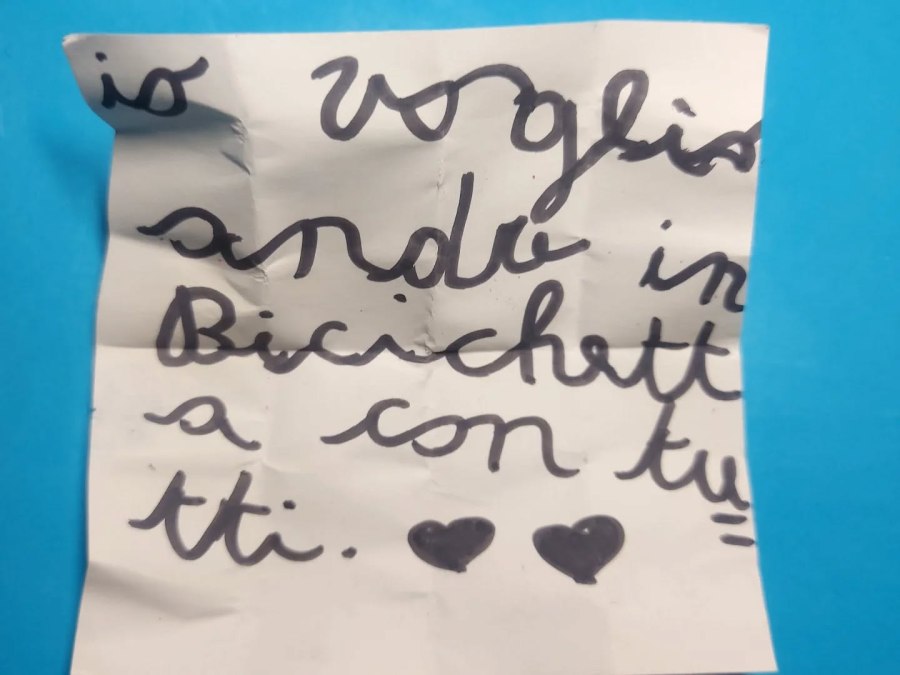 io voglio
andre in
Bicichett
a con tu=
tti. ♥♥